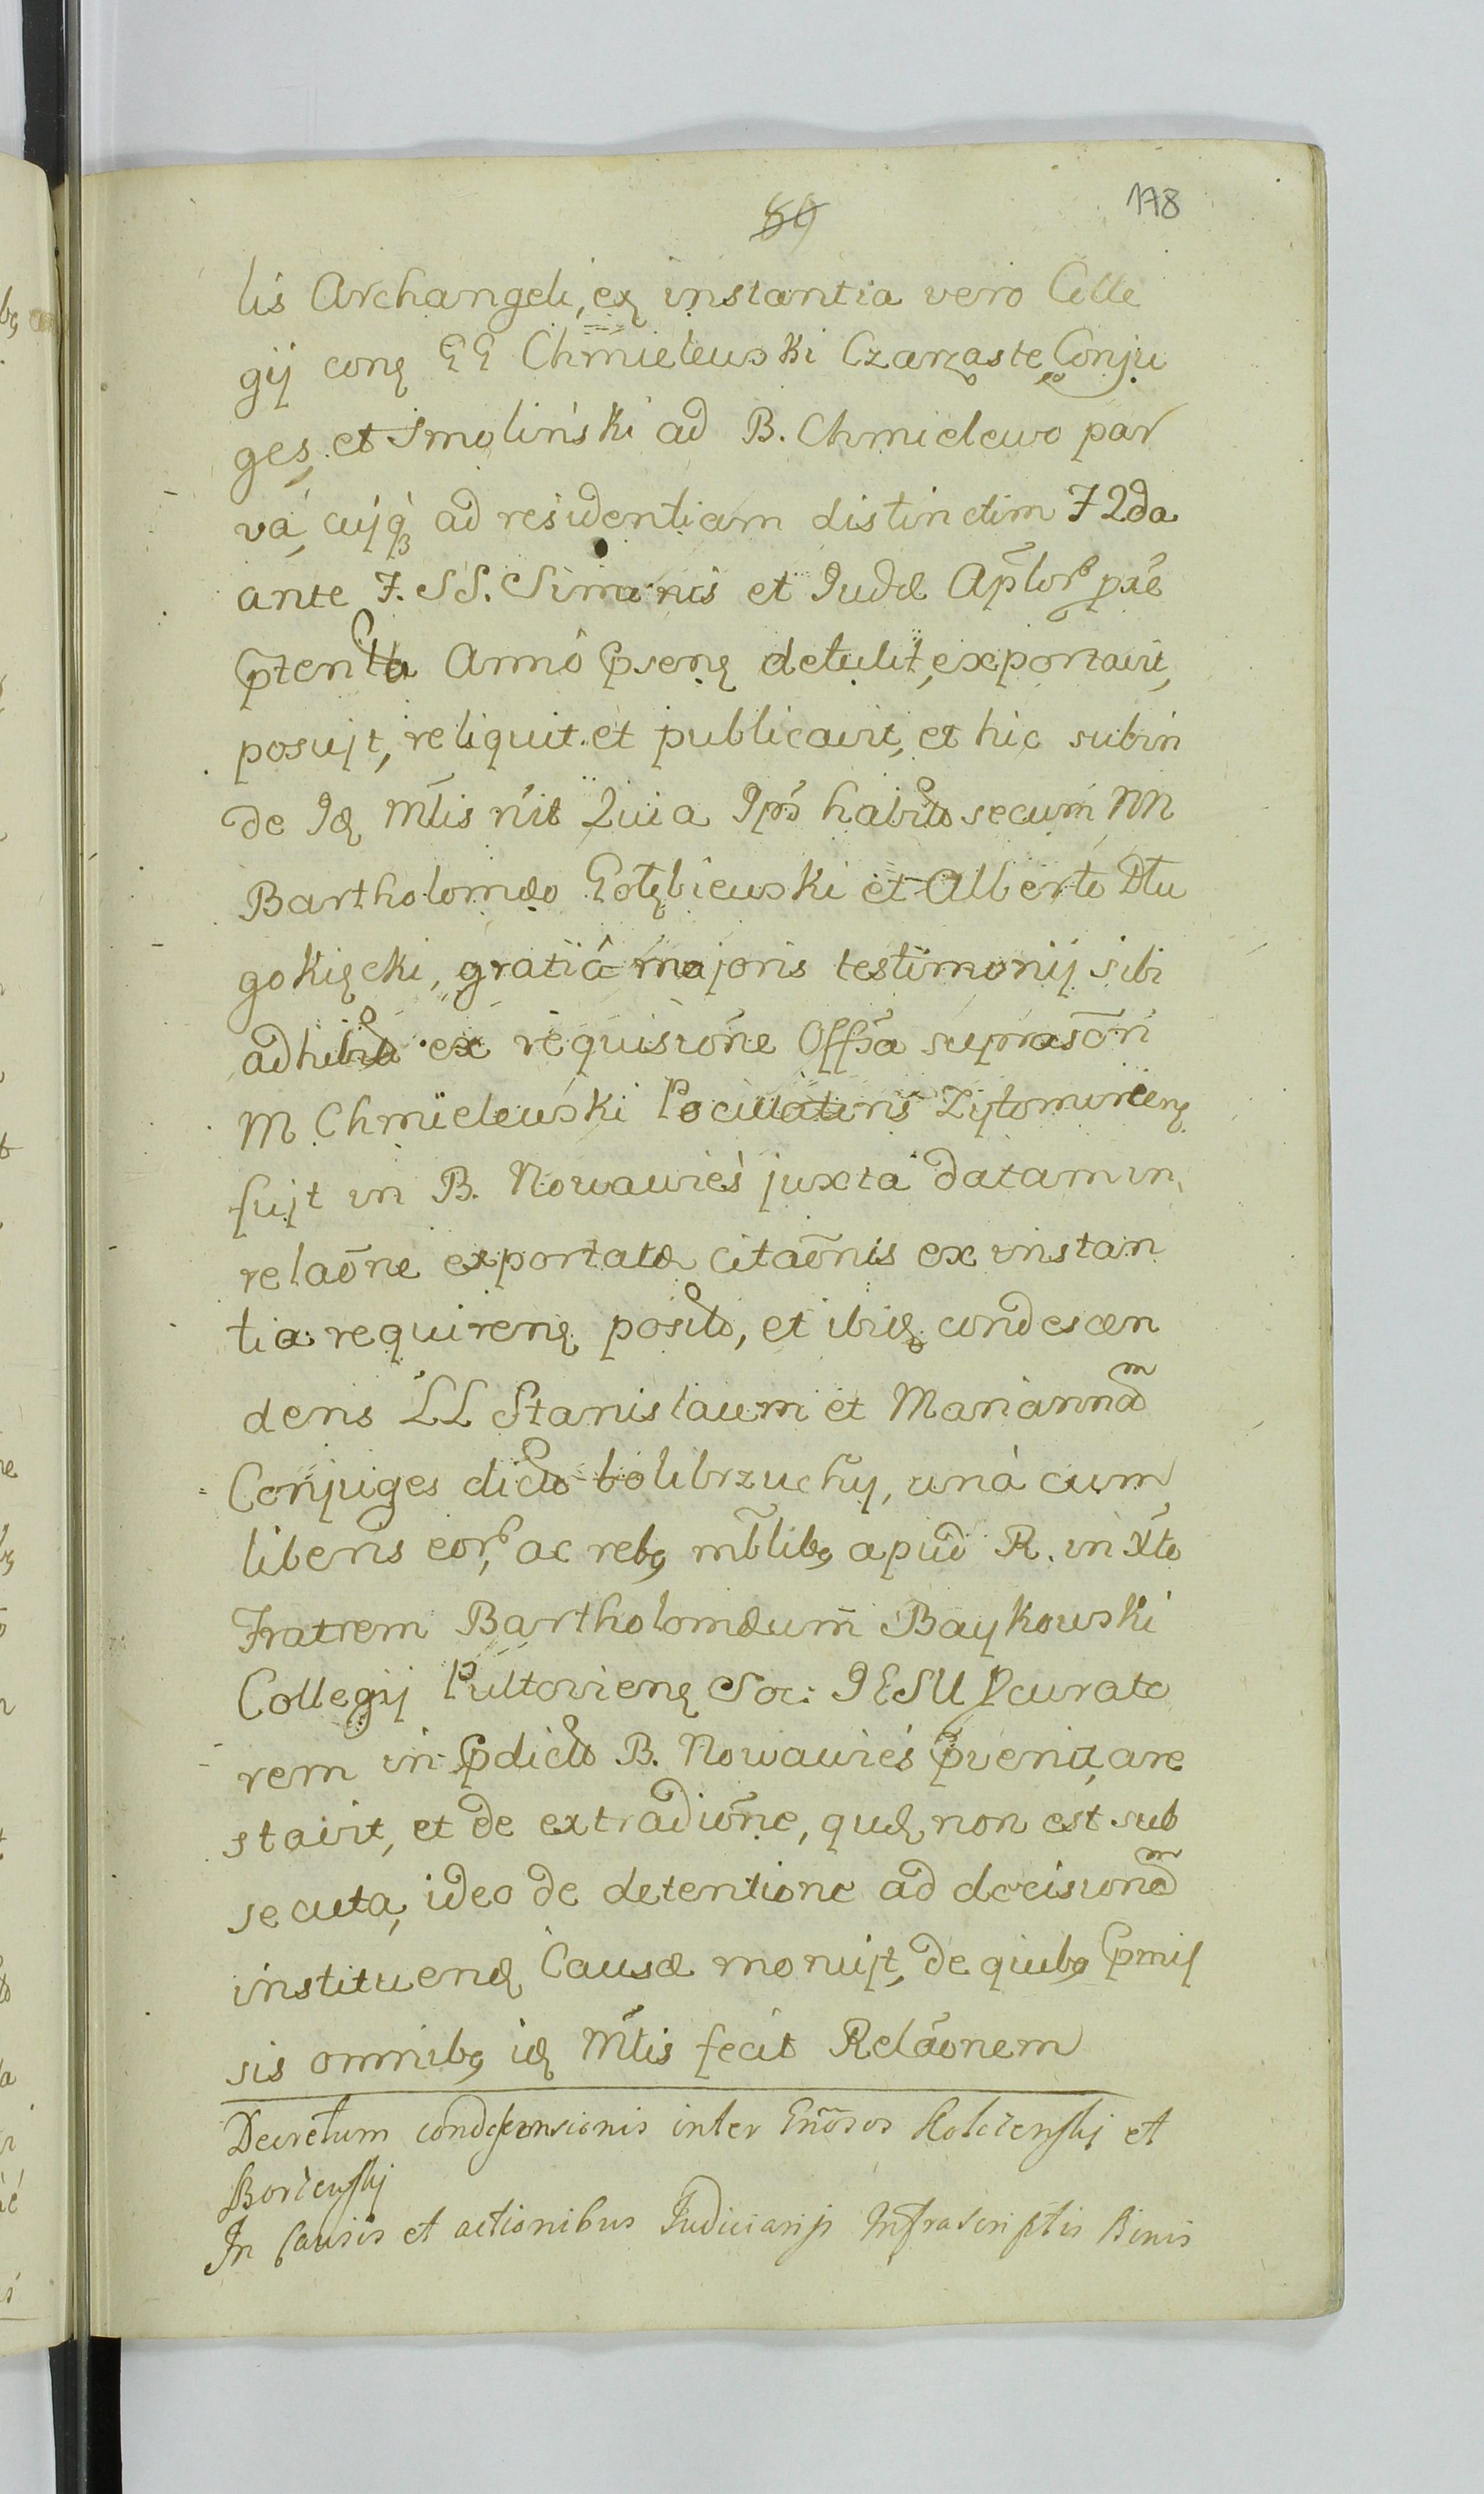 69
178
lis Archangeli, ex instantia vero Colle
gij conq GG Chmielewski Czarzaste Conju
ges, et Smoliński ad B. Chmielewo par
va, cujq ad residentiam distinctim F 2da
ante F. SS. Simonis et Judæ Apłor pxe
ptenta Anno pseng detulit, exportavit,
posujt, reliquit et publicavit, et hic subin
de Id Mtis rńit Quia Ips habito secum NN
Bartholomæo Gołębiewski et Alberto Dłu
gokięcki, gratiâ majoris testimonij sibi
adhibita ex requisiōne Offsa suprascri
M Chmielewski Pocillatoris Zytomirieng
fujt in B. Nowawieś juxta datam in
relaōne exportatæ citaōnis ex instan
tia requireng posito, et ibid condescen
dens LL Stanislaum et Mariannam
Conjuges dicto bolibrzuchy, unà cum
liberis eor, ac rebq mblibq apud R. in Xto
Fratrem Bartholomæum Baykowski
Collegij Pultovieng Soc: JESU pcurato
rem in pdicto B. Nowawieś pvenit, are
stavit, et de extradiōne, quæ non est sub
secuta, ideo de detentione ad decisionem
instituend Causæ monujt, de quibq pmis
sis omnibq id Mtis fecit Relaōnem
Decretum condescensionis inter Gnosos et
In Causis et actionibus Judiciarijs Infrascriptis Binis